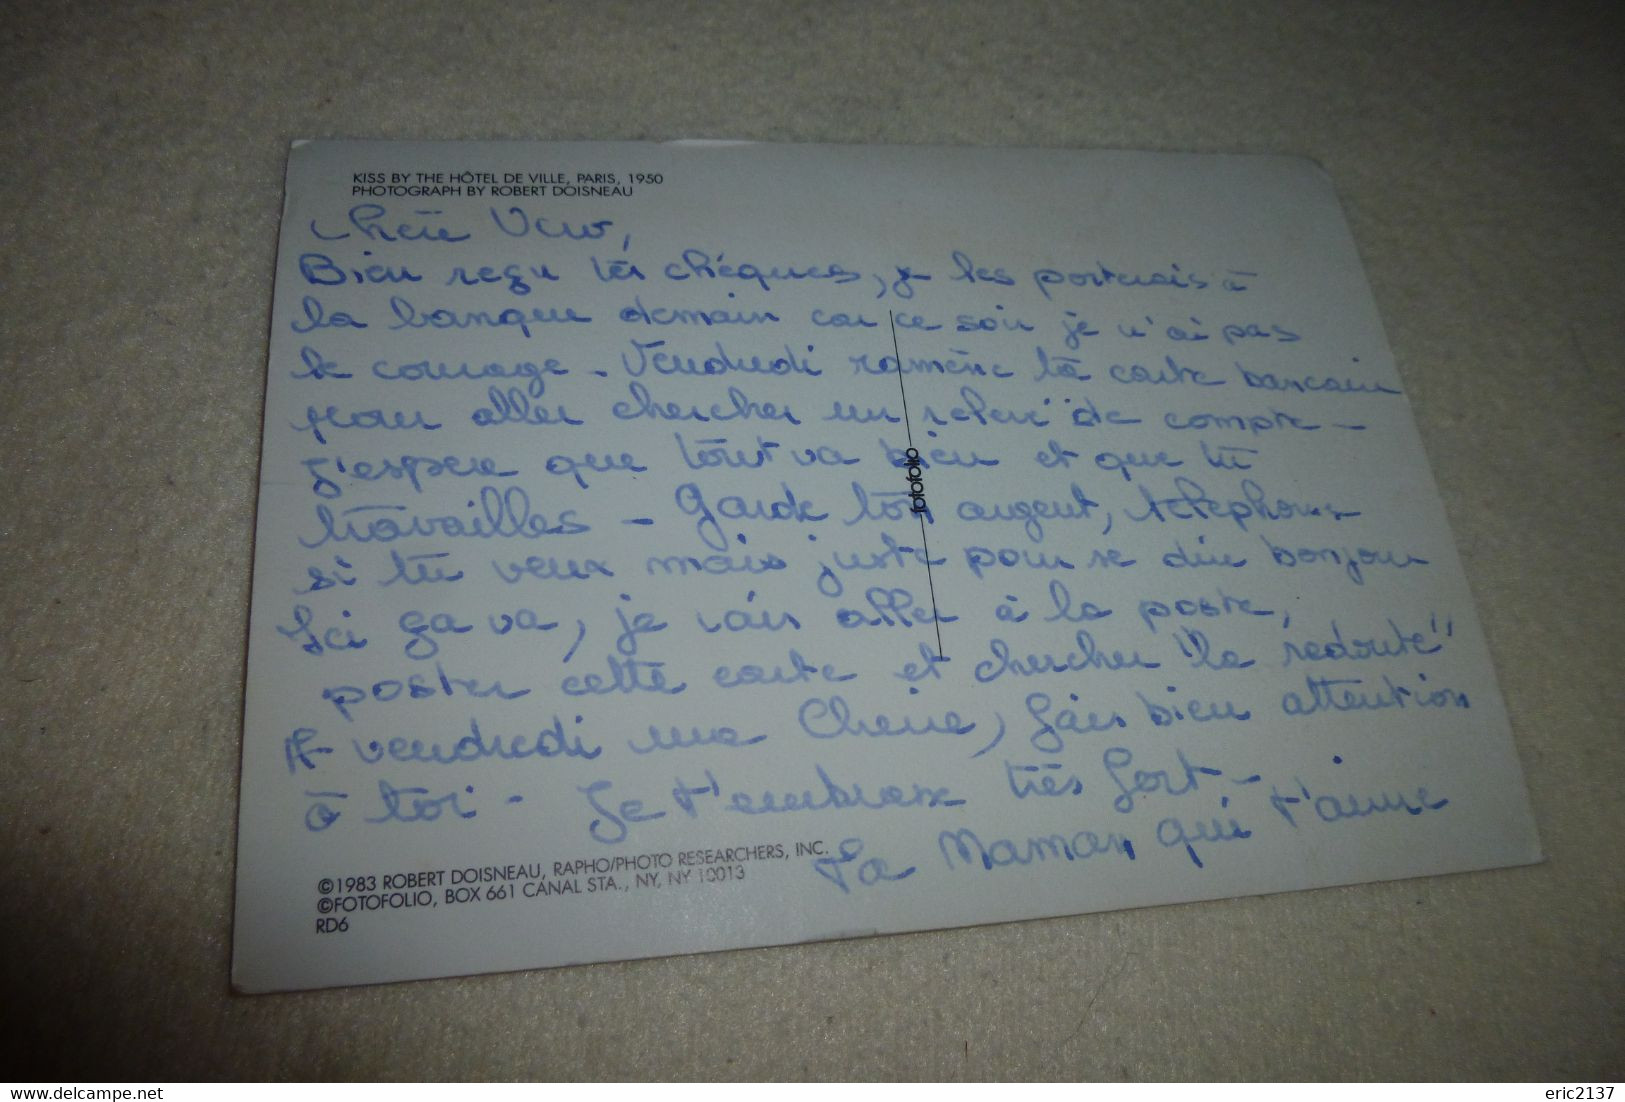 KISS BY THE HÔTEL DE VILLE, PARIS, 1950
PHOTOGRAPH BY ROBERT DOISNEAU
Chère Vero,
Bien reçu tes chéques, je les porterais à
la banque demain car ce soir je n'ai pas
le courage - Vendredi ramène ta carte bancaire
pour aller chercher un relevé de compte -
J'espere que tout va bien et que tu
travailles - Garde ton argent, telephone
si tu veux mais juste pour se dire bonjour
Ici ça va, je vais aller à la poste,
poster cette carte et chercher "la redoute"
A vendredi ma Cherie, fais bien attention
à toi - Je t'embrasse très fort -
Ta Maman qui t'aime
fotofolio
©1983 ROBERT DOISNEAU, RAPHO/PHOTO RESEARCHERS, INC.
©FOTOFOLIO, BOX 661 CANAL STA., NY, NY 10013
RD6
www.delcampe.net
eric2137